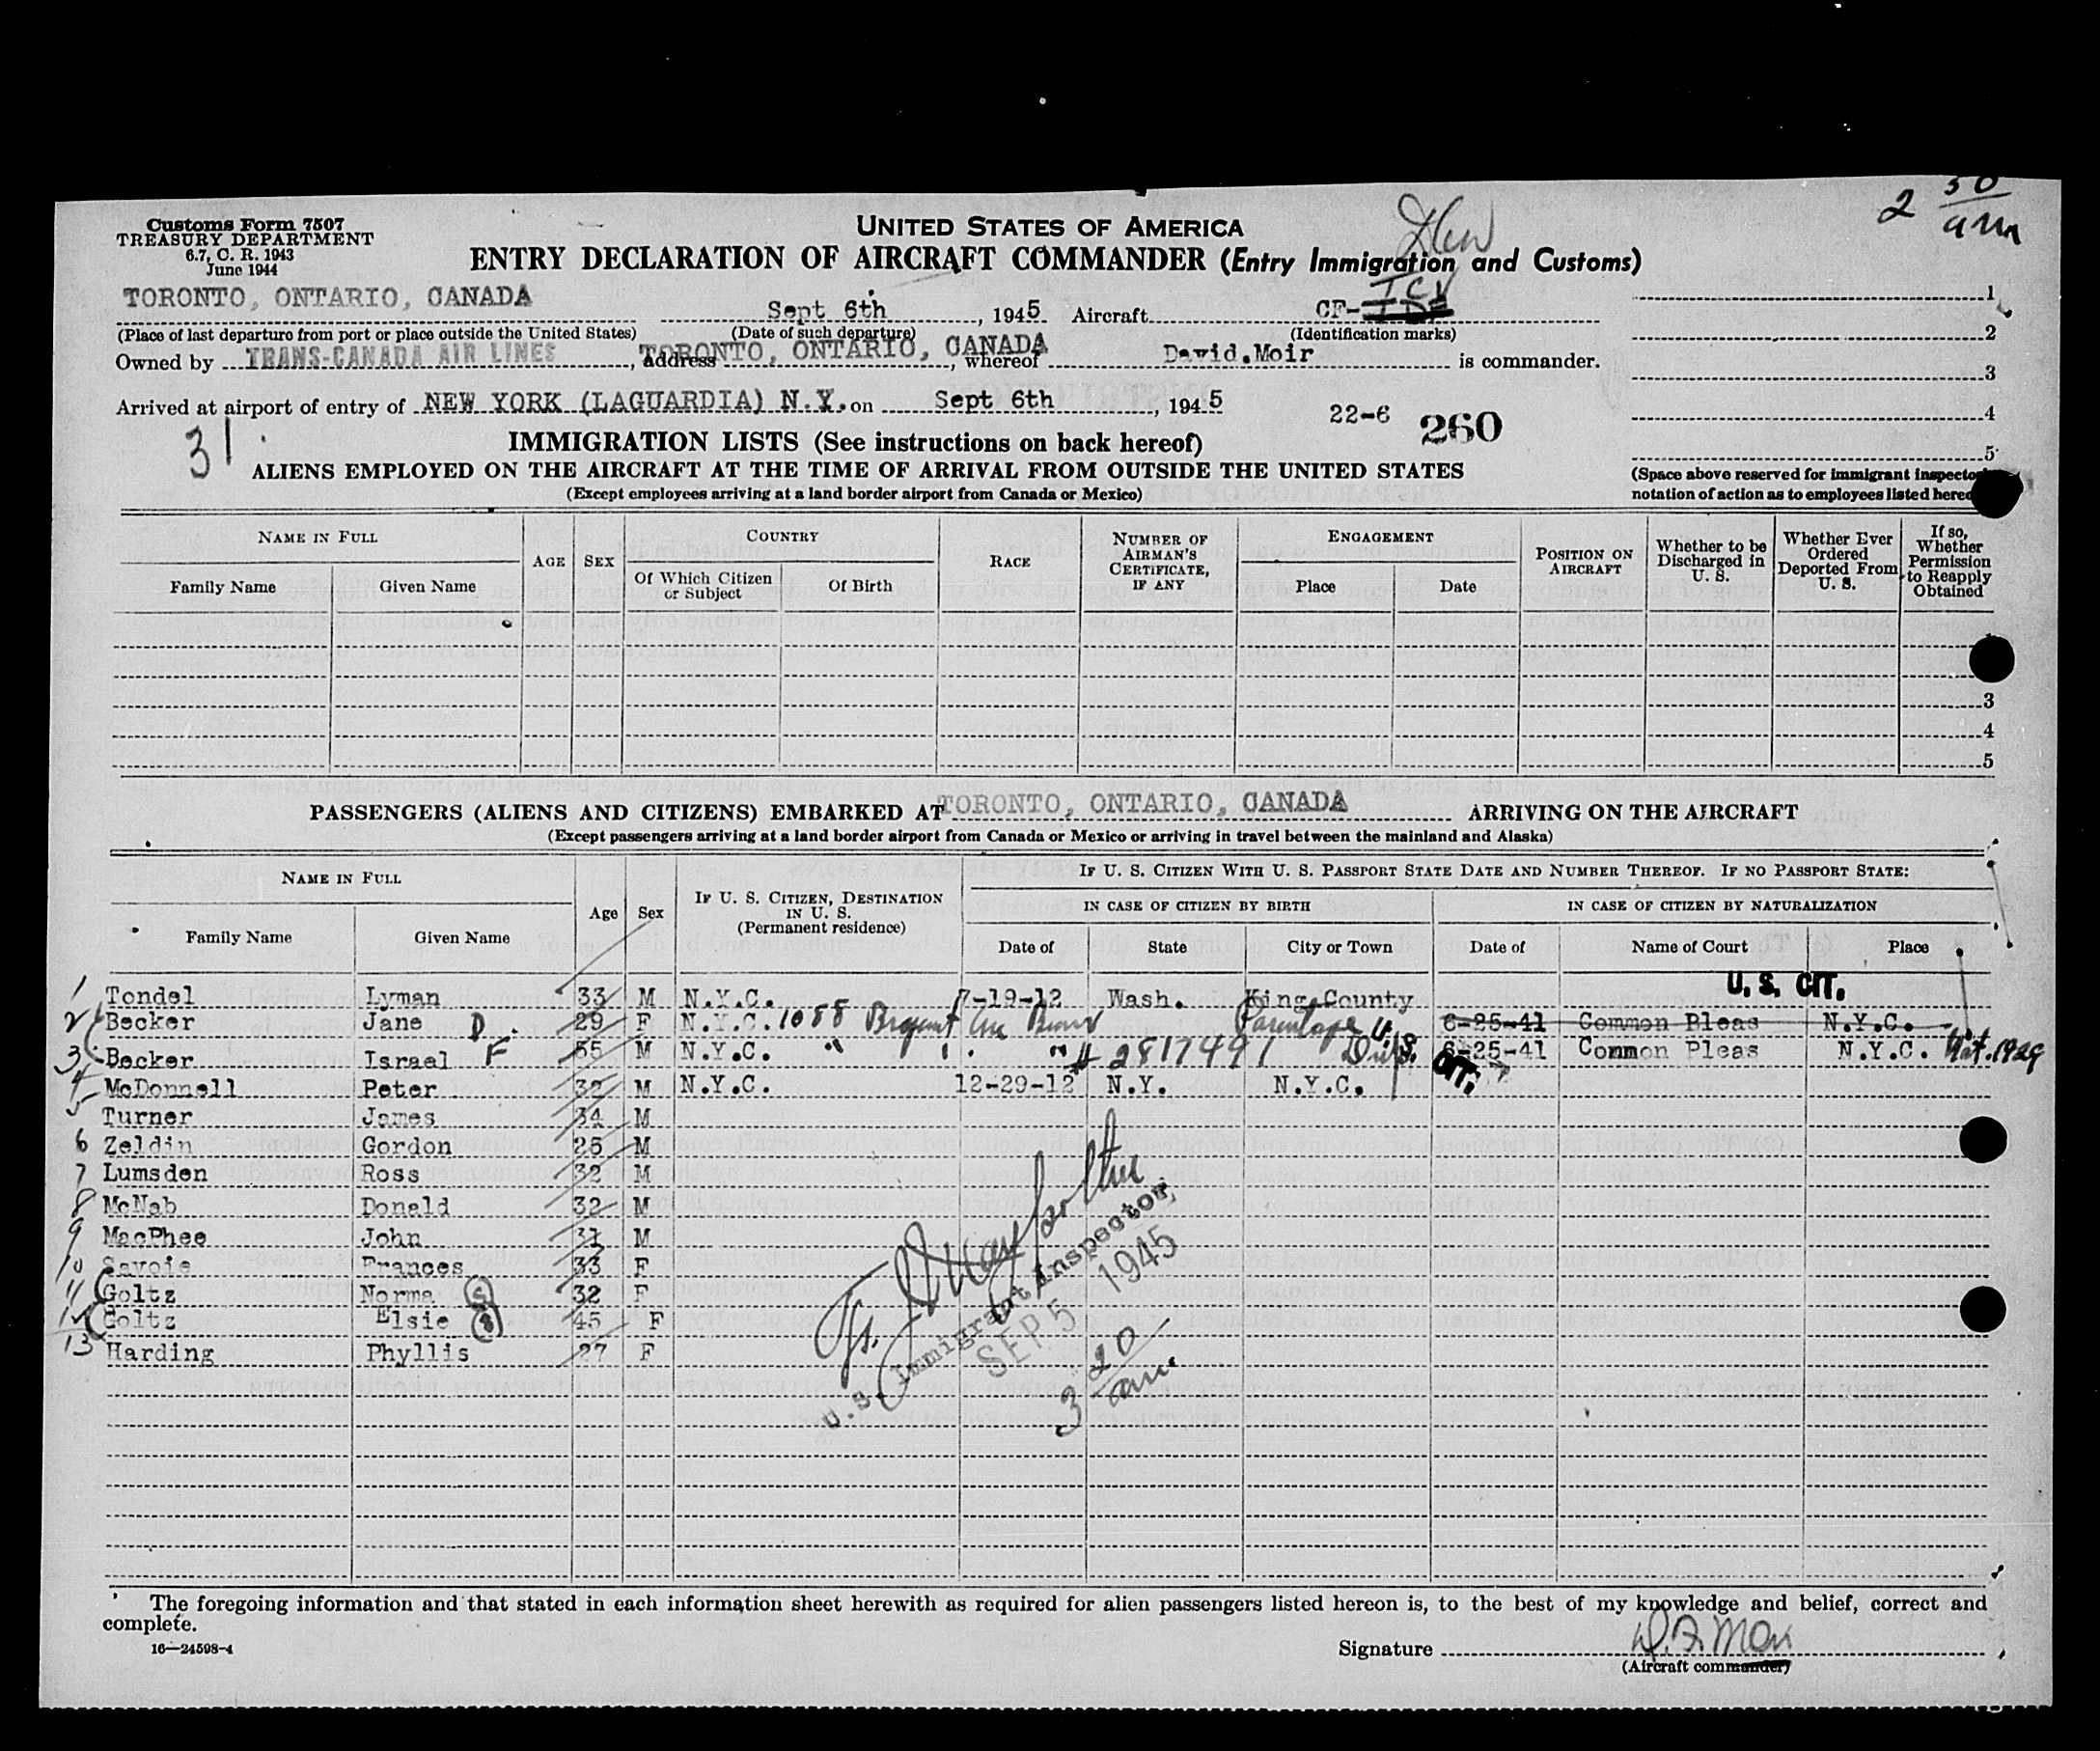 2 30 am
Customs Form 7507
TREASURY DEPARTMENT
6.7, C. R. 1943
June 1944
UNITED STATES OF AMERICA
ENTRY DECLARATION OF AIRCRAFT COMMANDER (Entry Immigration and Customs)
TORONTO, ONTARIO, CANADA Sept 6th, 1945 Aircraft CF- TCV 1
(Place of last departure from port or place outside the United States) (Date of such departure) (Identification marks) 2
Owned by TRANS-CANADA AIR LINES, address TORONTO, ONTARIO, CANADA, whereof David.Moir is commander. 3
Arrived at airport of entry of NEW YORK (LAGUARDIA) N.Y. on Sept 6th, 1945 22-6 260 4
31 IMMIGRATION LISTS (See instructions on back hereof) 5
ALIENS EMPLOYED ON THE AIRCRAFT AT THE TIME OF ARRIVAL FROM OUTSIDE THE UNITED STATES
(Except employees arriving at a land border airport from Canada or Mexico)
(Space above reserved for immigrant inspector
notation of action as to employees listed
NAME IN FULL
Family Name Given Name
AGE SEX
COUNTRY
Of Which Citizen or Subject Of Birth
RACE
NUMBER OF AIRMAN'S CERTIFICATE, IF ANY
ENGAGEMENT
Place Date
POSITION ON AIRCRAFT
Whether to be Discharged in U. S.
Whether Ever Ordered Deported From U. S.
If so, Whether Permission to Reapply Obtained
3
4
5
PASSENGERS (ALIENS AND CITIZENS) EMBARKED AT TORONTO, ONTARIO, CANADA ARRIVING ON THE AIRCRAFT
(Except passengers arriving at a land border airport from Canada or Mexico or arriving in travel between the mainland and Alaska)
NAME IN FULL
Family Name Given Name
Age Sex
IF U. S. CITIZEN, DESTINATION IN U. S. (Permanent residence)
IF U. S. CITIZEN WITH U. S. PASSPORT STATE DATE AND NUMBER THEREOF. IF NO PASSPORT STATE:
IN CASE OF CITIZEN BY BIRTH IN CASE OF CITIZEN BY NATURALIZATION
Date of State City or Town Date of Name of Court Place
1 Tondel Lyman 33 M N.Y.C. 7-19-12 Wash. King County U. S. CIT.
2 Becker Jane D. 29 F N.Y.C. 1088 Bryant Ave Bronx Parentage 6-25-41 Common Pleas N.Y.C.
3 Becker Israel F 55 M N.Y.C. " " " # 2817491 U.S. CIT. 6-25-41 Common Pleas N.Y.C. Nat. 1929
4 McDonnell Peter 32 M N.Y.C. 12-29-12 N.Y. N.Y.C.
5 Turner James 34 M
6 Zeldin Gordon 25 M
7 Lumsden Ross 32 M
8 McNab Donald 32 M
9 MacPhee John 31 M
10 Savoie Frances 33 F
11 Goltz Norma S 32 F
12 Goltz Elsie S 45 F
13 Harding Phyllis 27 F
U.S. Immigrant Inspector
SEP 5 1945
3 20 am.
The foregoing information and that stated in each information sheet herewith as required for alien passengers listed hereon is, to the best of my knowledge and belief, correct and
complete.
16—24598-4
Signature D.F. Moir
(Aircraft commander)